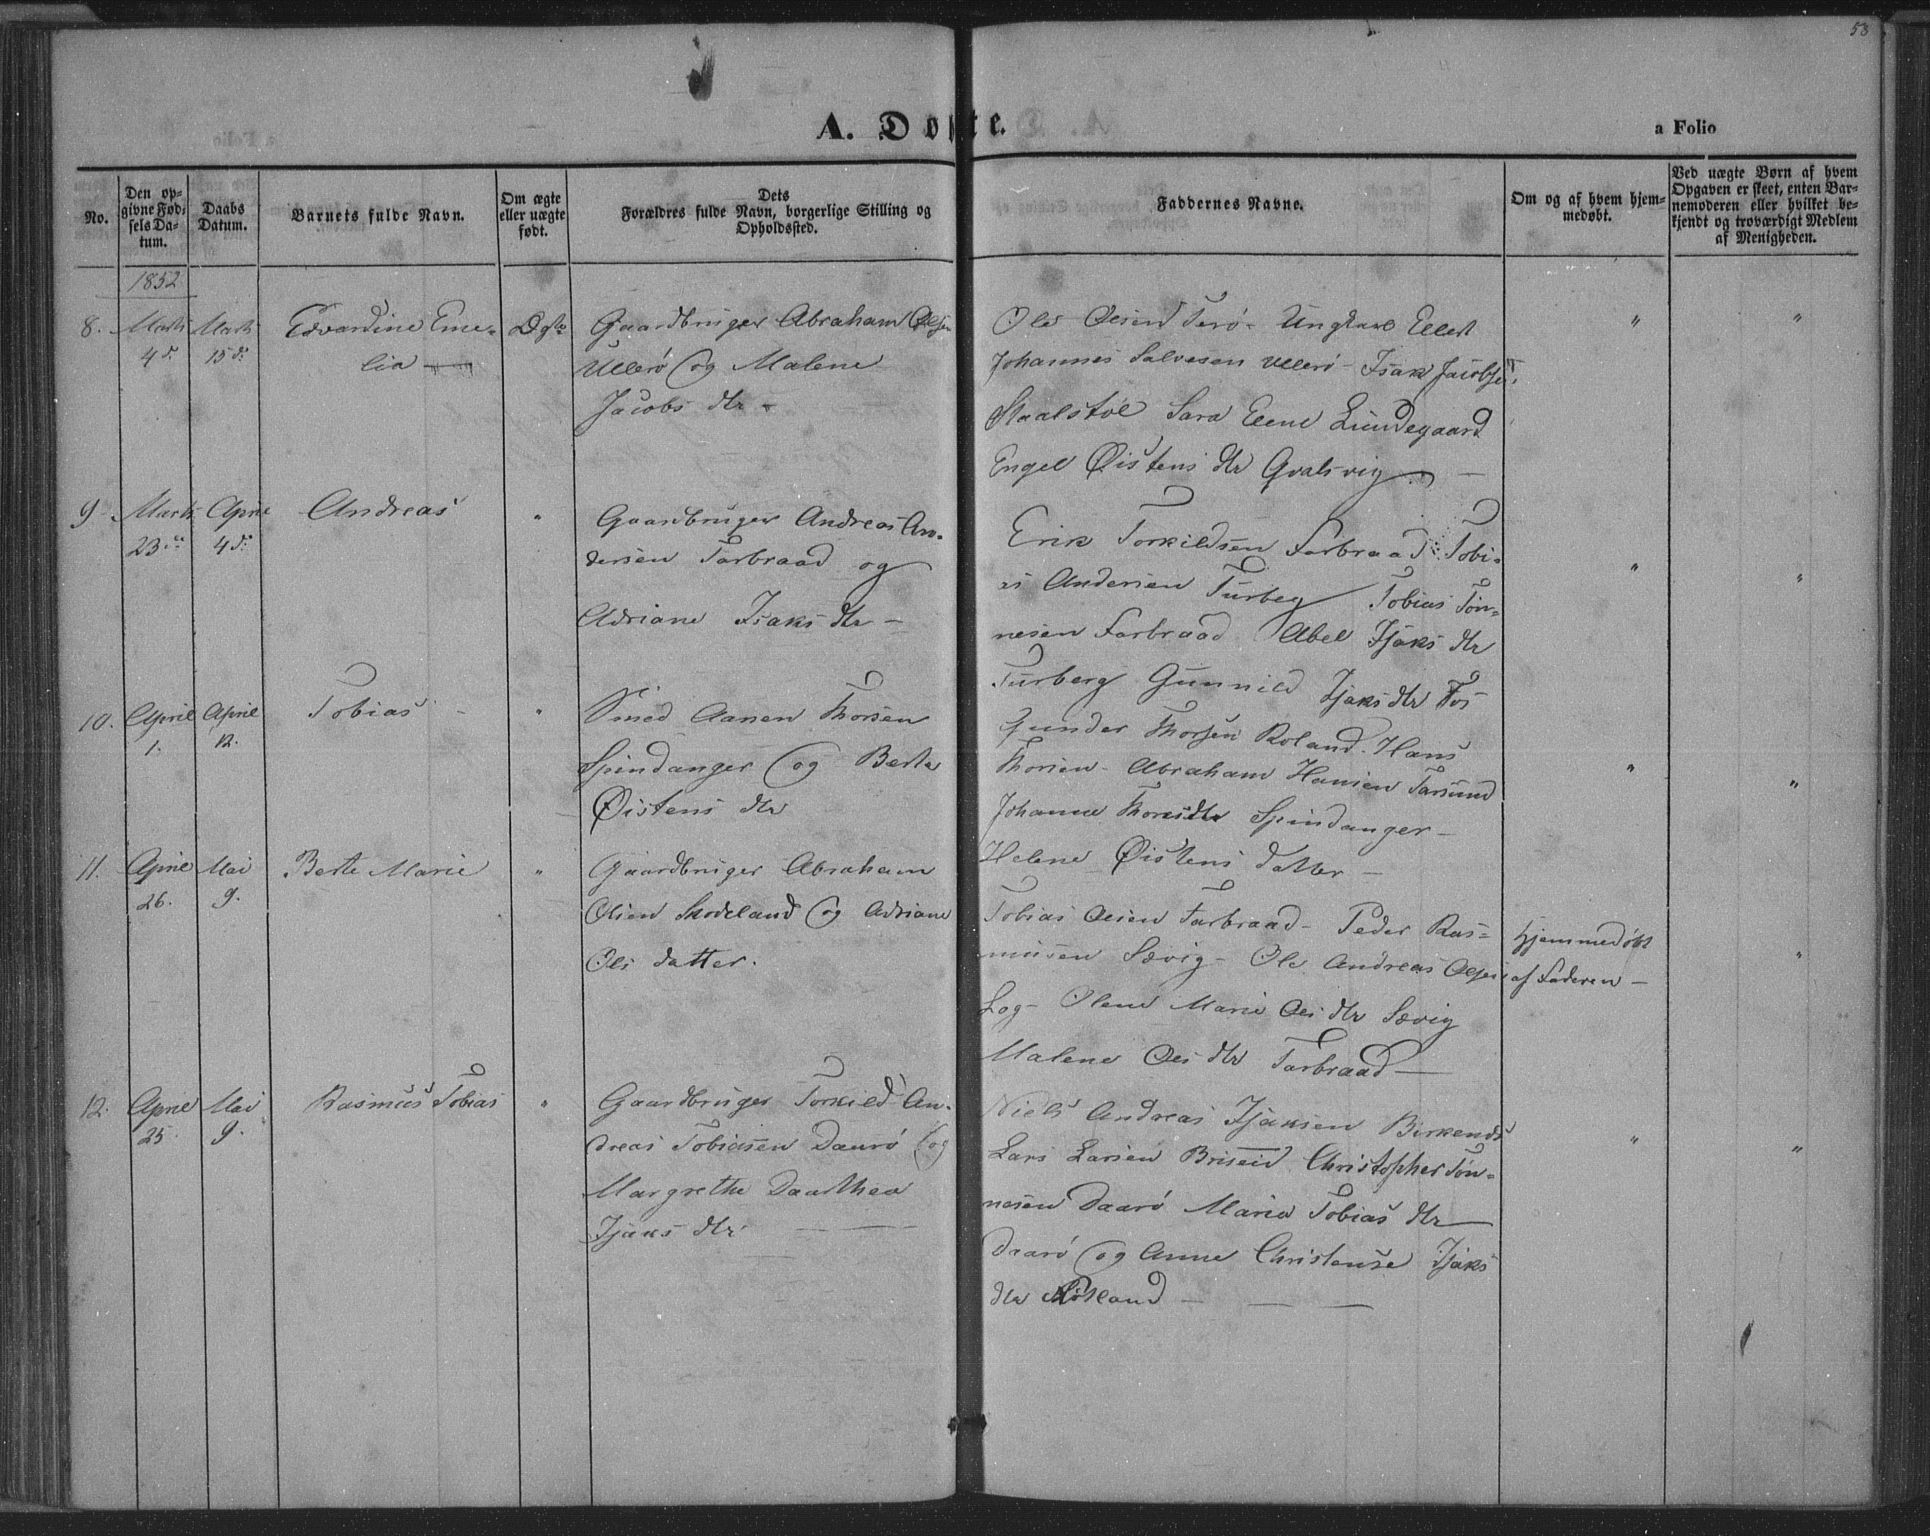 58
A. Døbte.
a Folio
No.
Den op-
givne Fød-
sels Da-
tum.
Daabs
Datum.
Barnets fulde Navn.
Om ægte
eller uægte
født.
Dets
Forældres fulde Navn, borgerlige Stilling og
Opholdssted.
Faddernes Navne.
Om og af hvem hjem-
medøbt.
Ved uægte Børn af hvem
Opgaven er skeet, enten Bar-
nemoderen eller hvilket be-
kjendt og troværdigt Medlem
af Menigheden.
1852
8. Marts 4 d. Marts 15 d. Edvardine Eme-
lia
Ægte
Gaardbruger Abraham Olsen
Ullerø og Malene
Jacobs dtr -
Ole Olsen Terø - Ungkarl Ellert
Johannes Salvesen Ullerø - Isak Jacobsen
Staalstøl Sara Elene Lundegaard
Engel Øistens dtr Qvalsvig -
" "
9. Marts 23de April 4 d. Andreas "
Gaardbruger Andreas An-
dersen Farbraad og
Adriane Isaks dtr -
Erik Torkildsen Farbraad Tobi-
as Andersen Furberg Tobias Tøn-
nesen Farbraad Abel Isaks dtr
Furberg Gunnild Isaks dtr Fos
" "
10. April 1. April 12. Tobias - "
Smed Aanen Thorsen
Spindanger og Berte
Øistens dtr
Gunder Thorsen Roland. Hans
Thorsen - Abraham Hansen Farsund
Johanne Thorsdtr Spindanger -
Helene Øistens datter -
" "
11. April 26. Mai 9. Berte Marie "
Gaardbruger Abraham
Olsen Skodeland og Adriane
Ols datter.
Tobias Olsen Farbraad - Peder Ras-
musen Sævig - Ole Andreas Olsen
Log - Olene Marie Ols dtr Sævig
Malene Ols dtr Farbraad -
Hjemmedøbt
af Faderen -
"
12. April 25. Mai 9. Rasmus Tobias "
Gaardbruger Torkild An-
dreas Tobiasen Daarø og
Margrethe Daarthea
Isaks dtr
Niels Andreas Isaksen Birkenes
Lars Larsen Briseid Christopher Tøn-
nesen Daarø Maria Tobias dtr
Daarø og Anne Christense Isaks
dtr Røtland -
" "